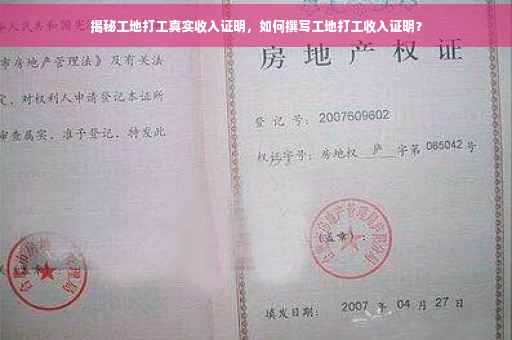 揭秘工地打工真实收入证明，如何撰写工地打工收入证明？
华人民共和国宪
市房地产管理法》及有关法
定，对权利人申请登记本证所
审查属实，准予登记，特发此
房地产权证
登记号：2007609602
权证字号：房地权 庐 字第 065042 号
(盖章)：
填发日期：2007 年 04 月 27 日